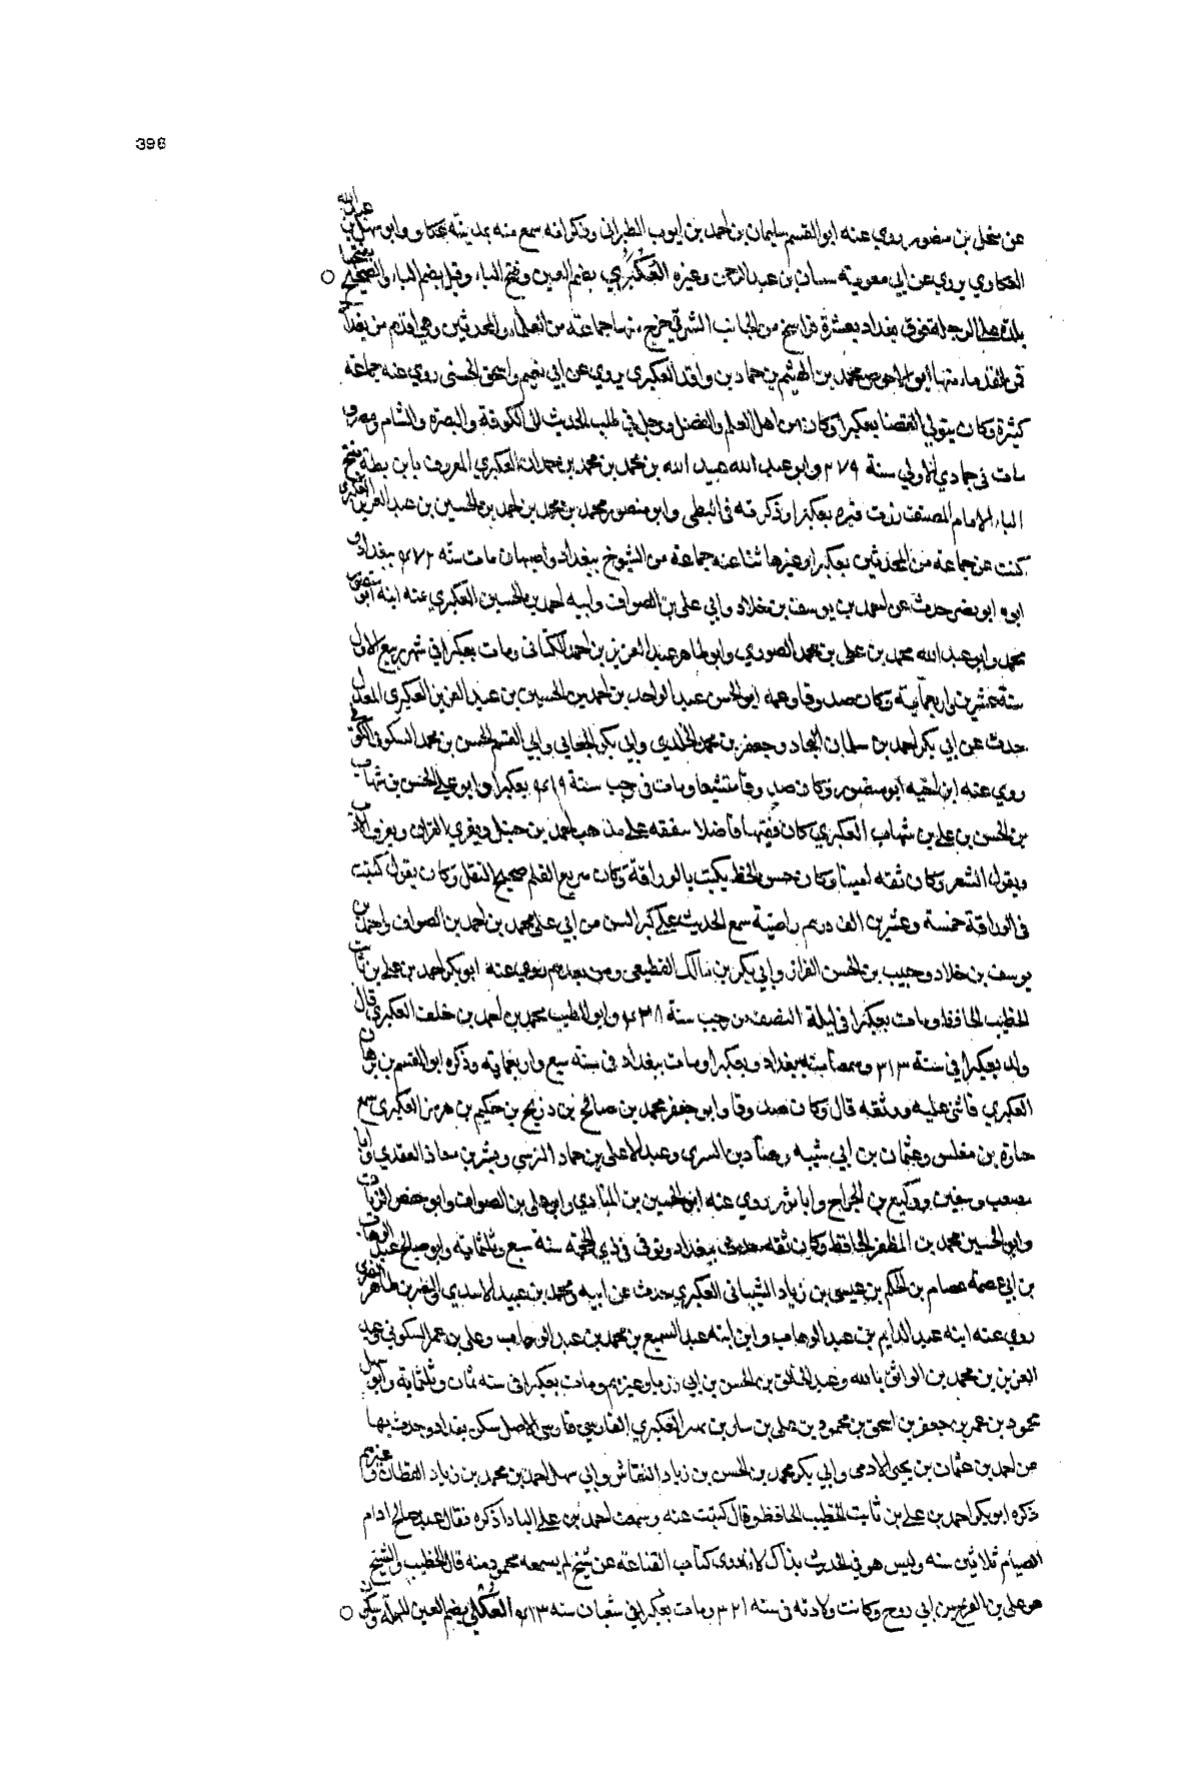 396
عن سهل بن منصور روي عنه ابو القسم سليمان بن احمد بن ايوب الطبراني وذكر انه سمع منه بمدينة عكا وابو سهل بن عبد الله
العكاوي يروي عن ابي معوية عبد الرحمن وغيره العكبري بضم العين وفتح الباء وقيل بضم الباء والصحيح بفتحها
بلدة على الدجلة فوق بغداد بعشرة فراسخ من الجانب الشرقي خرج منها جماعة من العلماء والمحدثين وهي اقدم من بغداد
فمن القدماء منها ابو الاحوص محمد بن الهيثم بن حماد بن واقد العكبري يروي عن ابي نعيم واسحق الحنيني روي عنه جماعة
كثيرة وكان يتولي القضا بعكبرا وكان من اهل العلم والفضل ورحل في طلب الحديث الى الكوفة والبصرة والشام ومصر و
مات في جمادي الاولي سنة ٢٧٩ وابو عبد الله عبيد الله بن محمد بن محمد بن حمدان العكبري المعروف بابن بطة بفتح
الباء الامام المصنف زرت قبره بعكبرا وذكرته في البطي وابو منصور محمد بن محمد بن احمد بن الحسين بن عبد العزيز العكبري
كتب عن جماعة من المحدثين بعكبرا وغيرها ثنا عنه جماعة من الشيوخ ببغداد واصبهان مات سنه ٤٧٢ ببغداد و
ابوه ابو نصر حدث عن احمد بن يوسف بن خلاد وابي علي بن الصواف وابيه احمد بن الحسين العكبري عنه ابنه ابو منصور
محمد وابو عبد الله محمد بن علي بن محمد الصوري وابو طاهر عبد العزيز بن احمد الكتاني ومات بعكبرا في شهر ربيع الاول
سنة عشرين واربعماية وكان صدوقا وعمه ابو الحسن عبد الواحد بن احمد بن الحسين بن عبد العزيز العكبري المعدل
حدث عن ابي بكر احمد بن سلمان النجاد وجعفر بن محمد الخلدي وابي بكر الجعابي وابي القسم الحسن بن محمد السكوني الكوفي
روي عنه ابن اخيه ابو منصور وكان صدوقا متشيعا ومات في رجب سنة ٤١٩ بعكبرا وابو علي الحسن بن شهاب
بن الحسن بن علي بن شهاب العكبري كان فقيها فاضلا تفقه على مذهب احمد بن حنبل ويقري القران ويعرف الادب
ويقول الشعر وكان ثقه امينا وكان حسن الخط يكتب بالوراقة وكان سريع القلم صحيح النقل وكان يقول كتبت
في الوراقة خمسة وعشرين الف درهم راضية سمع الحديث على كبر السن من ابي علي محمد بن احمد بن الصواف واحمد بن
يوسف بن خلاد وحبيب بن الحسن القزاز وابي بكر بن مالك القطيعي ومن بعدهم روي عنه ابو بكر احمد بن علي بن ثابت
الخطيب الحافظ ومات بعكبرا في ليلة النصف من رجب سنة ٤٣٨ وابو الطيب محمد بن احمد بن خلف العكبري قال
ولد بعكبرا في سنة ٣١٣ ببغداد وبعكبرا ومات ببغداد في سنه سبع واربعماية وذكره ابو القسم بن برهان
العكبري فاثنى عليه ووثقه قال وكان صدوقا وابو جعفر محمد بن صالح بن ذريح بن حكيم بن هرمز العكبري سمع
جبارة بن مغلس وعثمان بن ابي شيبه وهناد بن السري وعبد الاعلى بن حماد النرسي وبشر بن معاذ العقدي وابا
مصعب وسفين ووكيع بن الجراح وابا ثور روي عنه ابو الحسين بن المنادي وابو علي بن الصواف وابو حفص الزيات
وابو الحسين محمد بن المظفر الحافظ وكان ثقه حدث ببغداد وتوفي في ذي الحجة سنة سبع وثلثماية وابو صالح عبد الوهاب
بن ابي عصمة عصام بن الحكم بن عيسى بن زياد الشيباني العكبري حدث عن ابيه ومحمد بن عبيد الاسدي والنضر بن طاهر
روي عنه ابنه عبد الدايم بن عبد الوهاب وابن ابنه عبد السميع بن محمد بن عبد الوهاب وعلي بن عمر السكوني وعبد
العزيز بن محمد بن الواثق بالله وعبد الخالق بن الحسن بن ابي روبا وغيرهم ومات بعكبرا في سنه ثمان وثلثماية وابو سهل
محمود بن عمر بن جعفر بن اسحق بن محمود بن علي بن العكبري الفارسي فارسي الاصل سكن بغداد وحدث بها
عن احمد بن عثمان بن يحيى الادمي وابي بكر محمد بن الحسن بن زياد النقاش وابي سهل احمد بن محمد بن زياد القطان وغيرهم
ذكره ابو بكر احمد بن علي بن ثابت الخطيب الحافظ وقال كتبت عنه وسمعت احمد بن علي البادا ذكره فقال عبد صالح ادام
الصيام ثلاثين سنه وليس هو في الحديث بذاك لانه روى كتاب القناعة عن شيخ لم يسمعه محمود منه قال الخطيب والشيخ
هو علي بن الفرج بن ابي روح وكانت ولادته في سنه ٣٢١ ومات بعكبرا في شعبان سنه ٤١٣ العكلي بضم العين المهملة وسكون